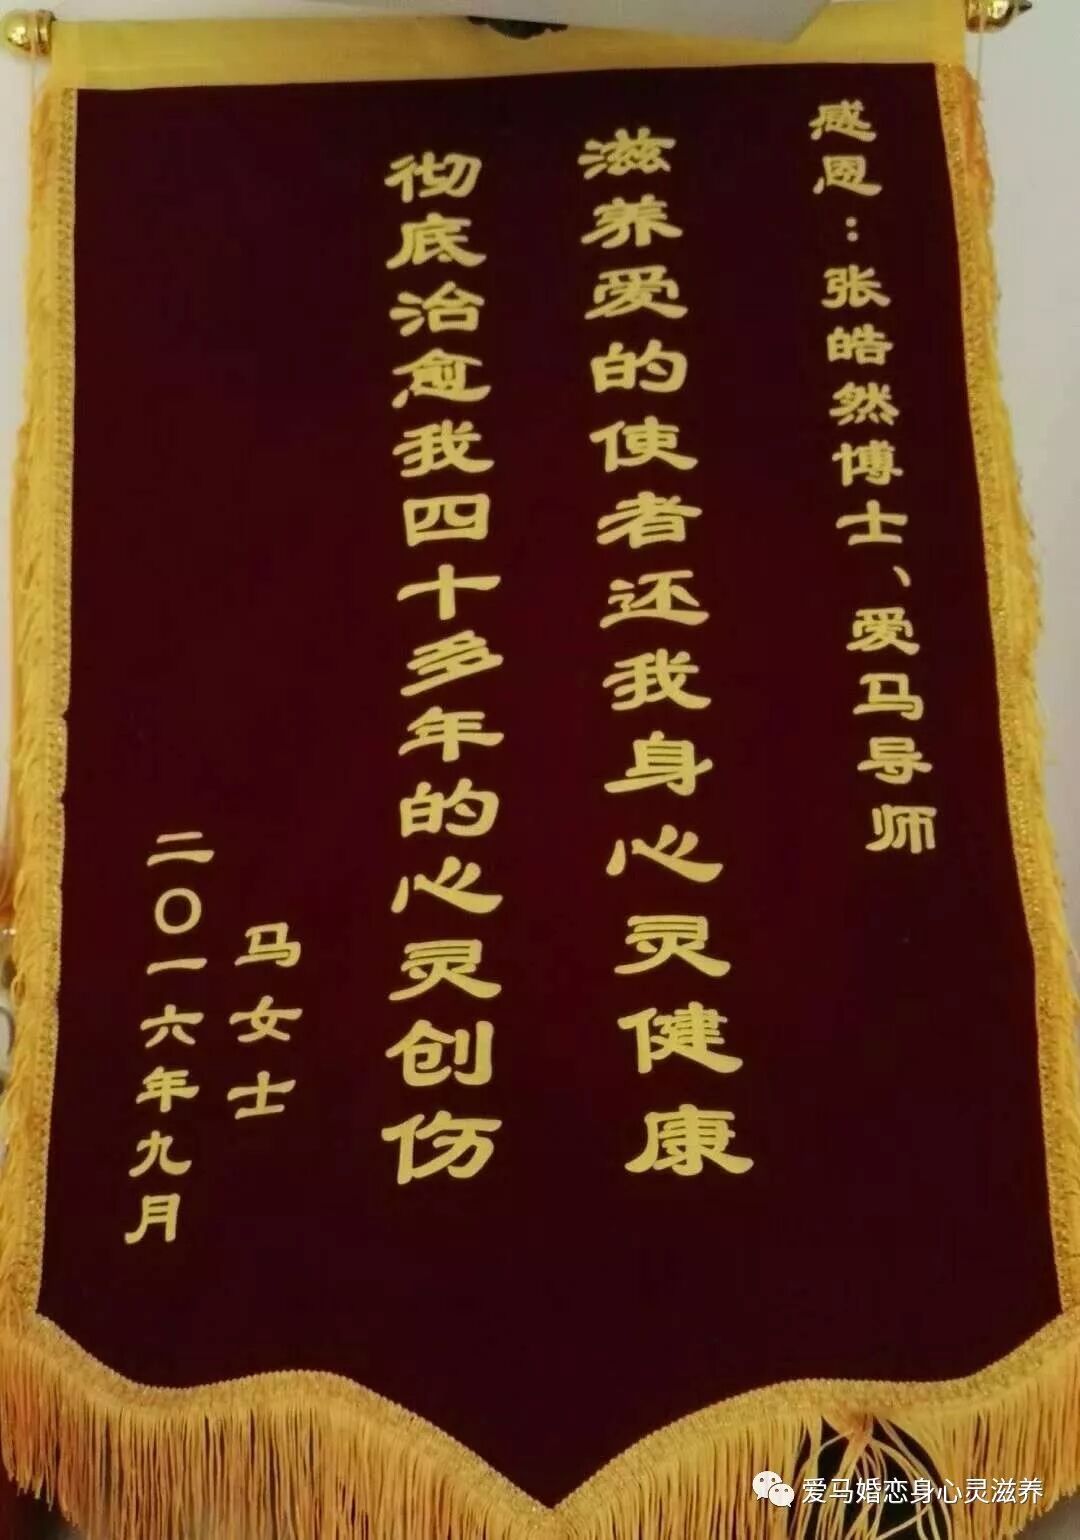 感恩：张皓然博士、爱马导师
滋养爱的使者还我身心灵健康
彻底治愈我四十多年的心灵创伤
马女士
二〇一六年九月
爱马婚恋身心灵滋养